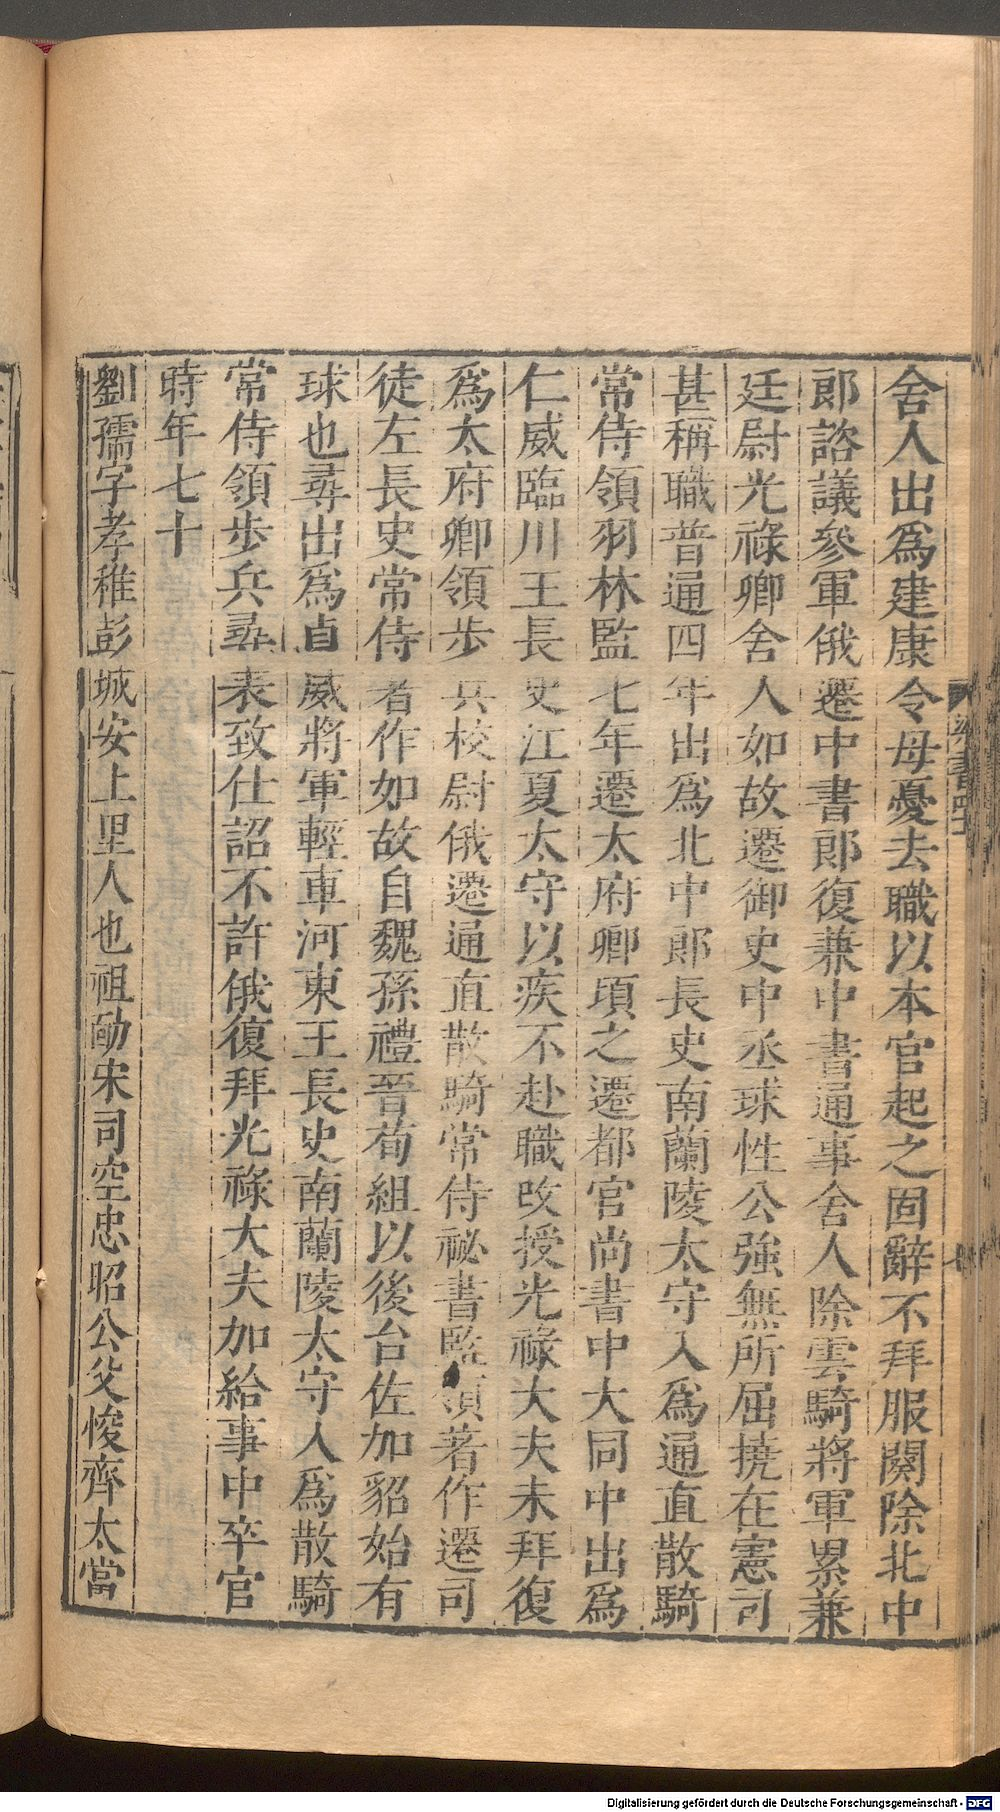 舍人出爲建康令母憂去職以本官起之固辭不拜服闋除北中
郎諮議參軍俄遷中書郎復兼中書通事舍人除雲騎將軍累兼
廷尉光祿卿舍人如故遷御史中丞球性公強無所屈撓在憲司
甚稱職普通四年出爲北中郎長史南蘭陵太守入爲通直散騎
常侍領羽林監七年遷太府卿頃之遷都官尚書中大同中出爲
仁威臨川王長史江夏太守以疾不赴職改授光祿大夫未拜復
爲太府卿領步兵校尉俄遷通直散騎常侍祕書監領著作遷司
徒左長史常侍著作如故自魏孫禮晉荀組以後台佐加貂始有
球也尋出爲貞威將軍輕車河東王長史南蘭陵太守入爲散騎
常侍領步兵尋表致仕詔不許俄復拜光祿大夫加給事中卒官
時年七十
劉孺字孝稚彭城安上里人也祖勔宋司空忠昭公父悛齊太常
梁書四十一
Digitalisierung gefördert durch die Deutsche Forschungsgemeinschaft - DFG